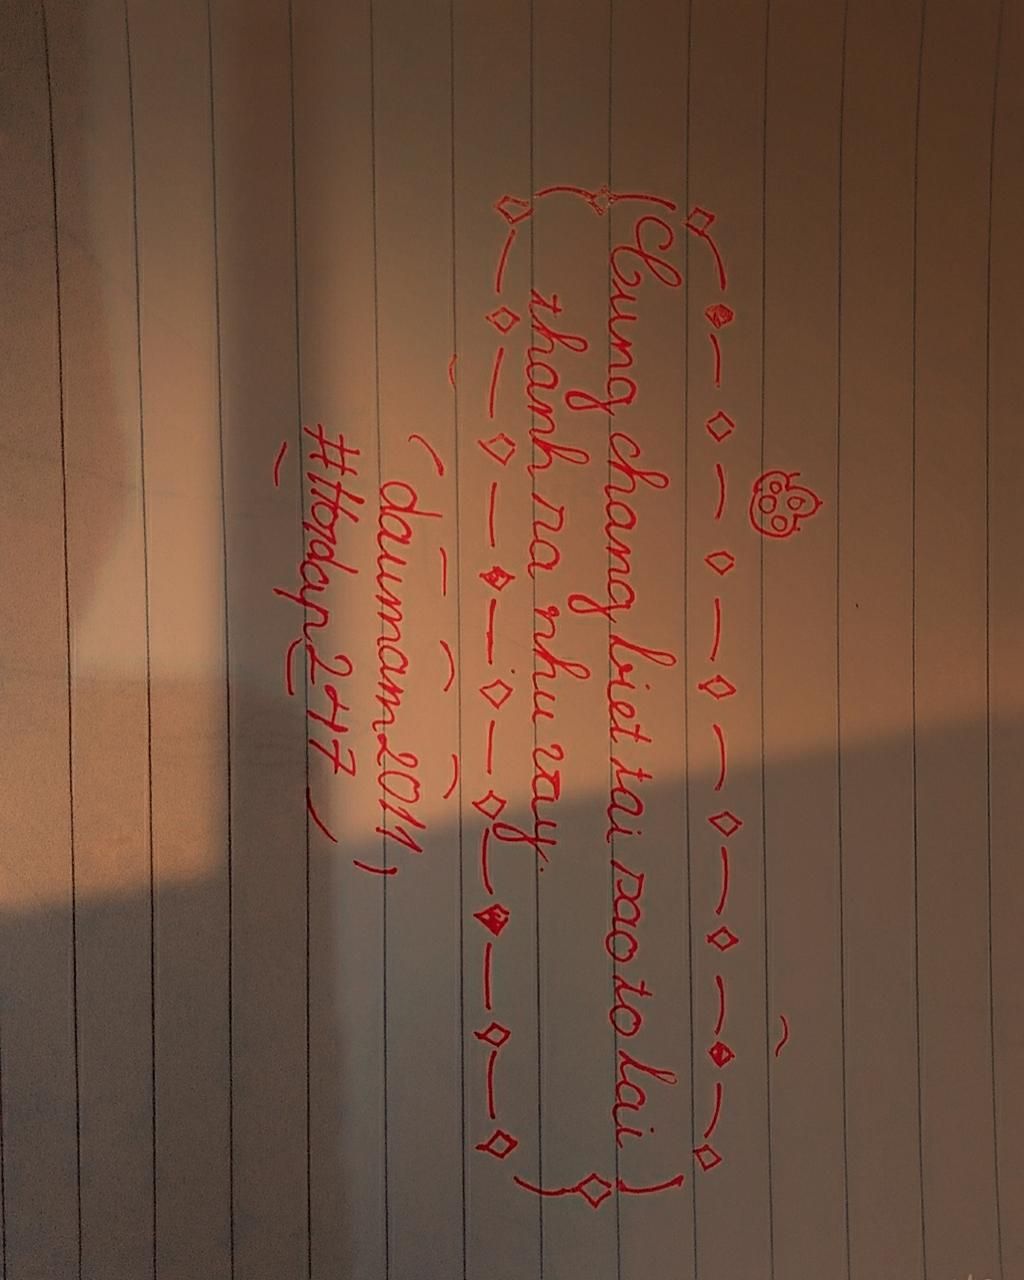 Cung chang biet tai sao to lai
thanh ra nhu vay.
daumam2011